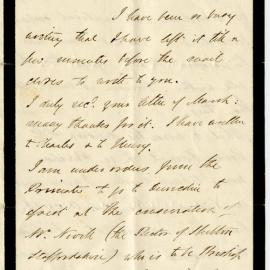 I have been so busy
writing that I have left it till a
few minutes before the mail
closes to write to you.
I duly rec.d your letter of March:
many thanks for it. I have written
to Charles & to Henry.
I am under orders from the
Primate to go to Dunedin to
assist at the consecration of
Mr. Nevill (the Rector of Shelton
Staffordshire) who is to be Bishop